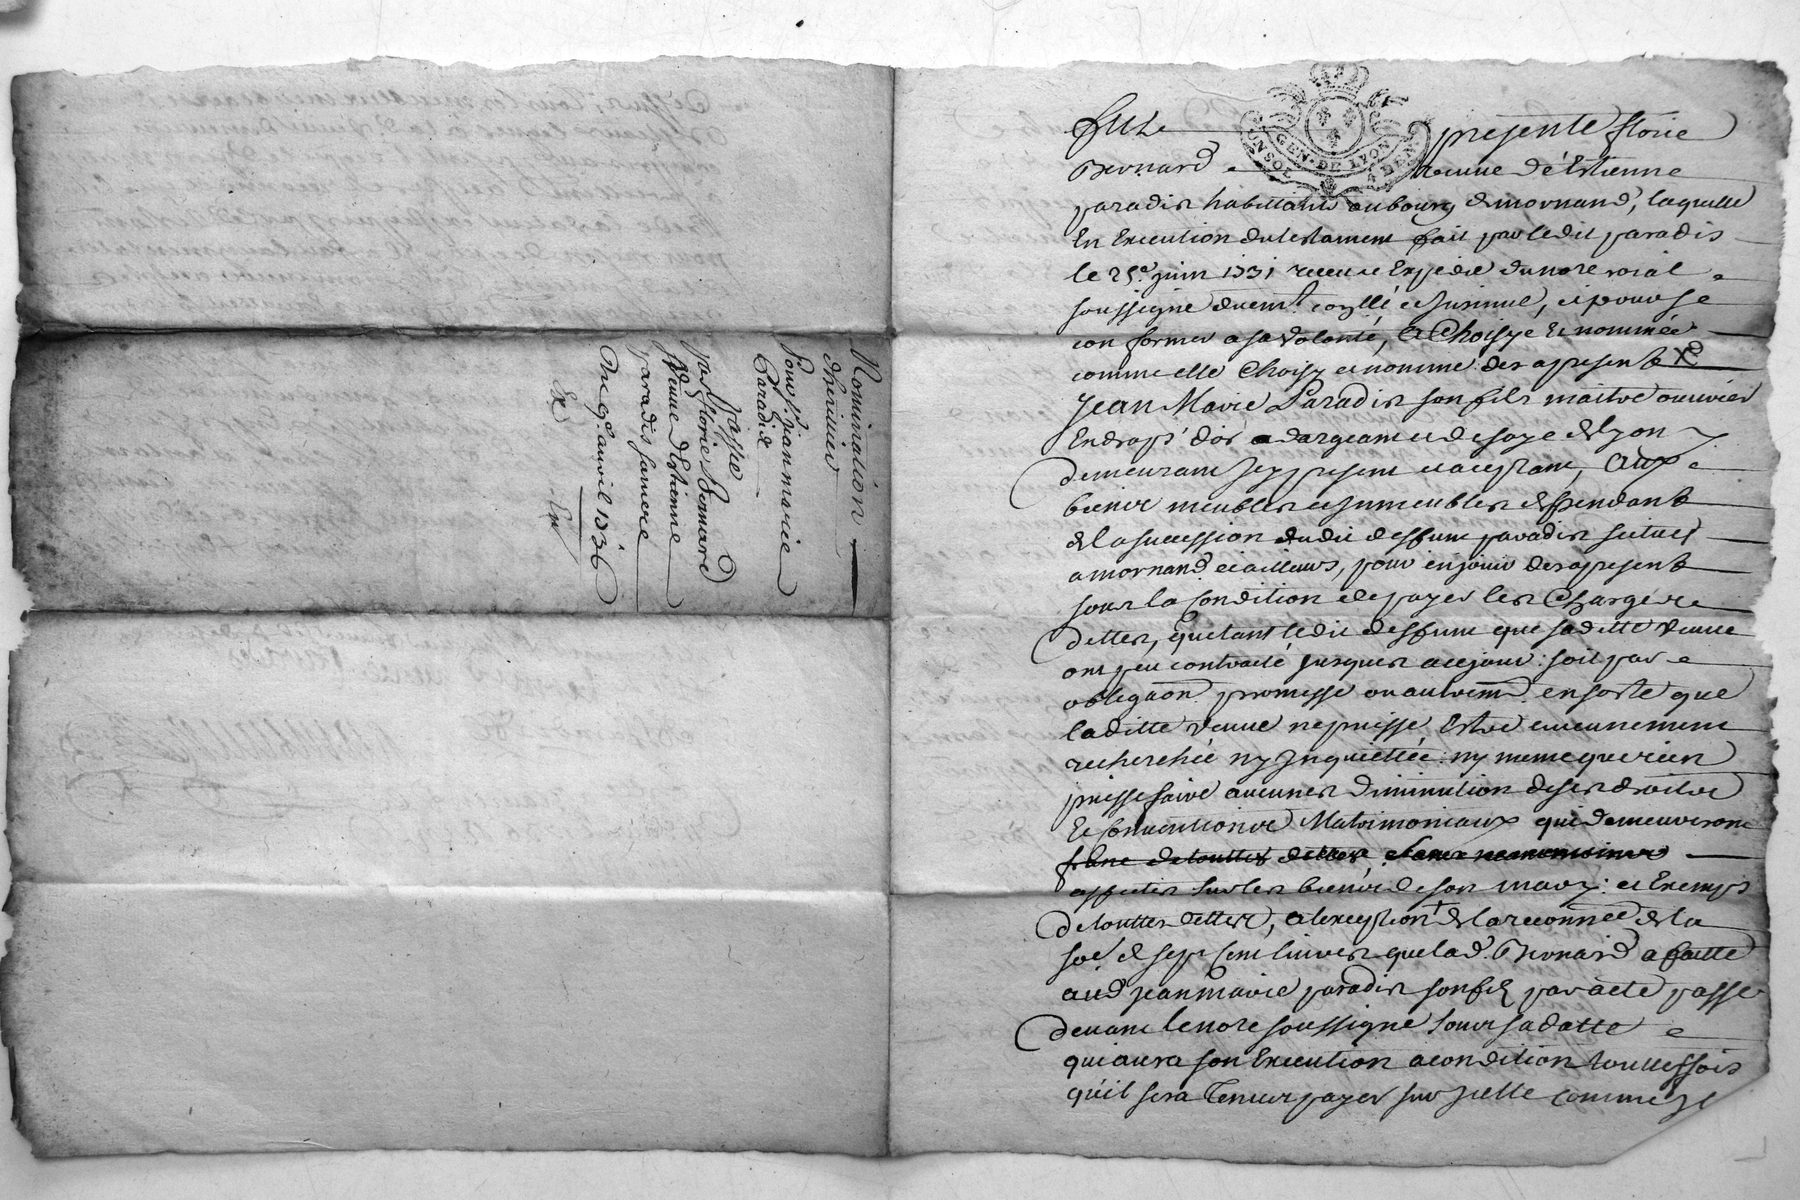 Nomination
d'heritier
Pour Sr. jean marie
Paradis
Passé
par florie Bernard
veuve d'Estienne
paradis sa mere
Du 9e. avril 1736
Ex
GEN. DE LYON
4 DEN
fut presente florie
Bernard veuve d'Estienne
paradis habittante au bourg de mornand, laquelle
En Execution du testament fait par ledit paradis
le 25e. juin 1731 receu et Expedié du nore roial
soussigne duemt. conllé et Insinué, et pour se
conformer a sa volonté, a Choisye et nommée
comme elle Choisy et nomme des apresent
Jean Marie Paradis son fils maitre ouvrier
En draps d'or dargeant et de soye de Lyon y
demeurant Icy present et aceptant, aux
biens meubles et Immeubles dependant
de la succession dudit deffunt paradis scitués
a mornand et ailleurs, pour en jouir des apresent
sous la Condition de payer les Charges et
dettes, que tant ledit deffunt que sa ditte veuve
ont peu contracté jusques a ce jour: soit par
obligaon. promesse ou autremt. en sorte que
laditte veuve ne puisse Estre aucunement
recherchée ny Inquiettée: ny meme que rien
puisse faire aucunes diminution de ses droits
Et Conventions Matrimoniaux qui demeureront
franc de touttes dettes
affectés sur les biens de son mary: et Exempt
de touttes dettes, a lexception de la reconnce de la
soe. de sept Cent livres que lad. Bernard a faitte
aud jean marie paradis son fils par acte passé
devant le nore soussigne sous sa datte
qui aura son Execution a condition touttesfois
qu'il sera Tenu payer sur Icelle comme Il